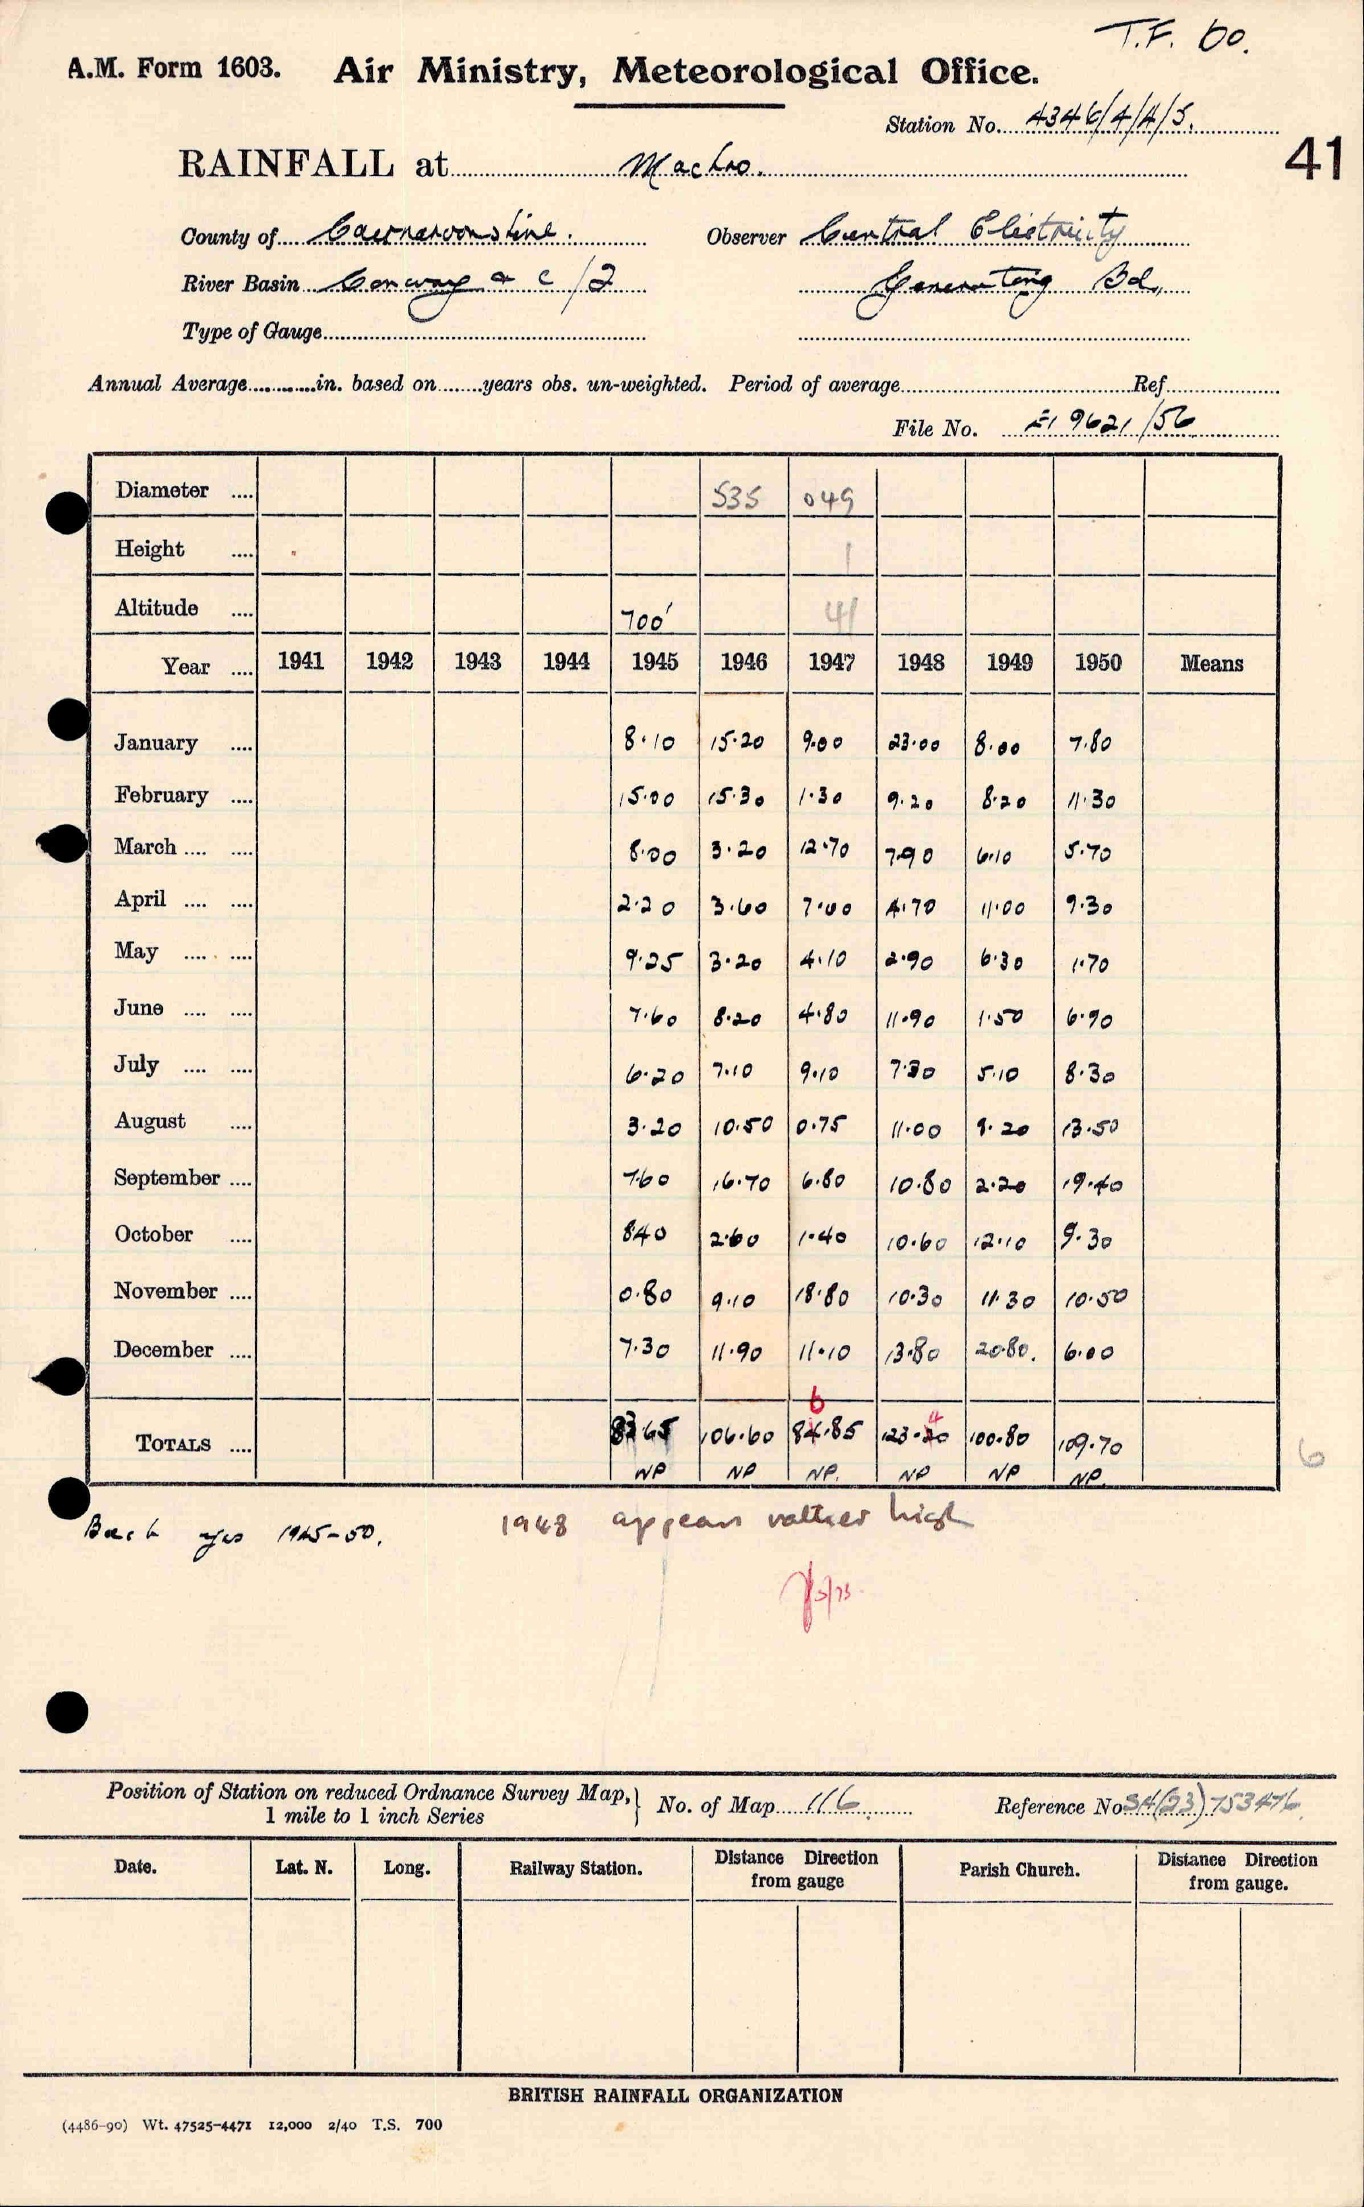 T.F. 60.
A.M. Form 1603. Air Ministry, Meteorological Office.
Station No. 4346/4/4/5.
41
RAINFALL at Machno.
County of Caernarvonshire. Observer Central Electricity
River Basin Conway & C/2 Generating Bd.
Type of Gauge
Annual Average in. based on years obs. un-weighted. Period of average Ref
File No. 9621/56
Diameter .... 535 049
Height .... 1
Altitude .... 700' 41
Year .... 1941 1942 1943 1944 1945 1946 1947 1948 1949 1950 Means
January .... 8.10 15.20 9.00 23.00 8.00 7.80
February .... 15.00 15.30 1.30 9.20 8.20 11.30
March .... .... 8.00 3.20 12.70 7.90 6.10 5.70
April .... .... 2.20 3.60 7.00 4.70 11.00 9.30
May .... .... 9.25 3.20 4.10 2.90 6.30 1.70
June .... .... 7.60 8.20 4.80 11.90 1.50 6.90
July .... .... 6.20 7.10 9.10 7.30 5.10 8.30
August .... 3.20 10.50 0.75 11.00 9.20 13.50
September .... 7.60 16.70 6.80 10.80 2.20 19.40
October .... 8.40 2.60 1.40 10.60 12.10 9.30
November .... 0.80 9.10 18.80 10.30 11.30 10.50
December .... 7.30 11.90 11.10 13.80 20.80. 6.00
6 4
TOTALS .... 83.65 106.60 84.85 123.20 100.80 109.70
NP NP NP. NP NP NP.
6
Back yrs 1945-50. 1948 appears rather high
Position of Station on reduced Ordnance Survey Map,
1 mile to 1 inch Series
No. of Map 116 Reference No SH(23)753476
Date. Lat. N. Long. Railway Station. Distance Direction from gauge Parish Church. Distance Direction from gauge.
BRITISH RAINFALL ORGANIZATION
(4486-90) Wt. 47525-4471 12,000 2/40 T.S. 700